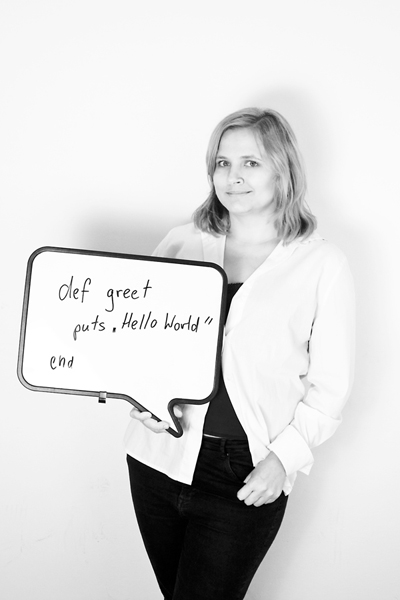 def greet
puts „Hello World"
end